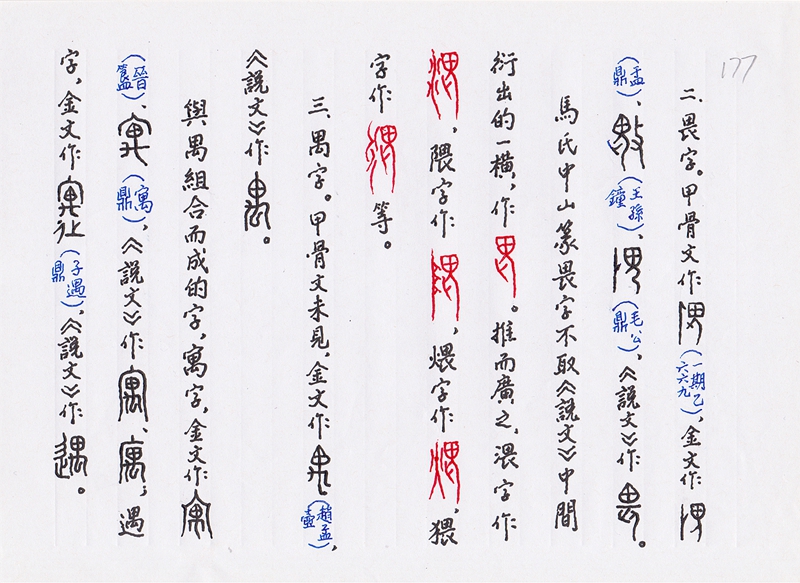 177
二、畏字。甲骨文作(一期乙六六九)、金文作
(盂鼎)、(王孫鐘)、(毛公鼎)、《說文》作。
馬氏中山篆畏字不取《說文》中間
衍出的一橫,作。推而廣之,渨字作
,隈字作,煨字作,猥
字作等。
三、禺字。甲骨文未見,金文作(趙孟壺),
《說文》作。
與禺組合而成的字,寓字,金文作
(晉簋)、(寓鼎)、《說文》作、;遇
字,金文作(子遇鼎)、《說文》作。